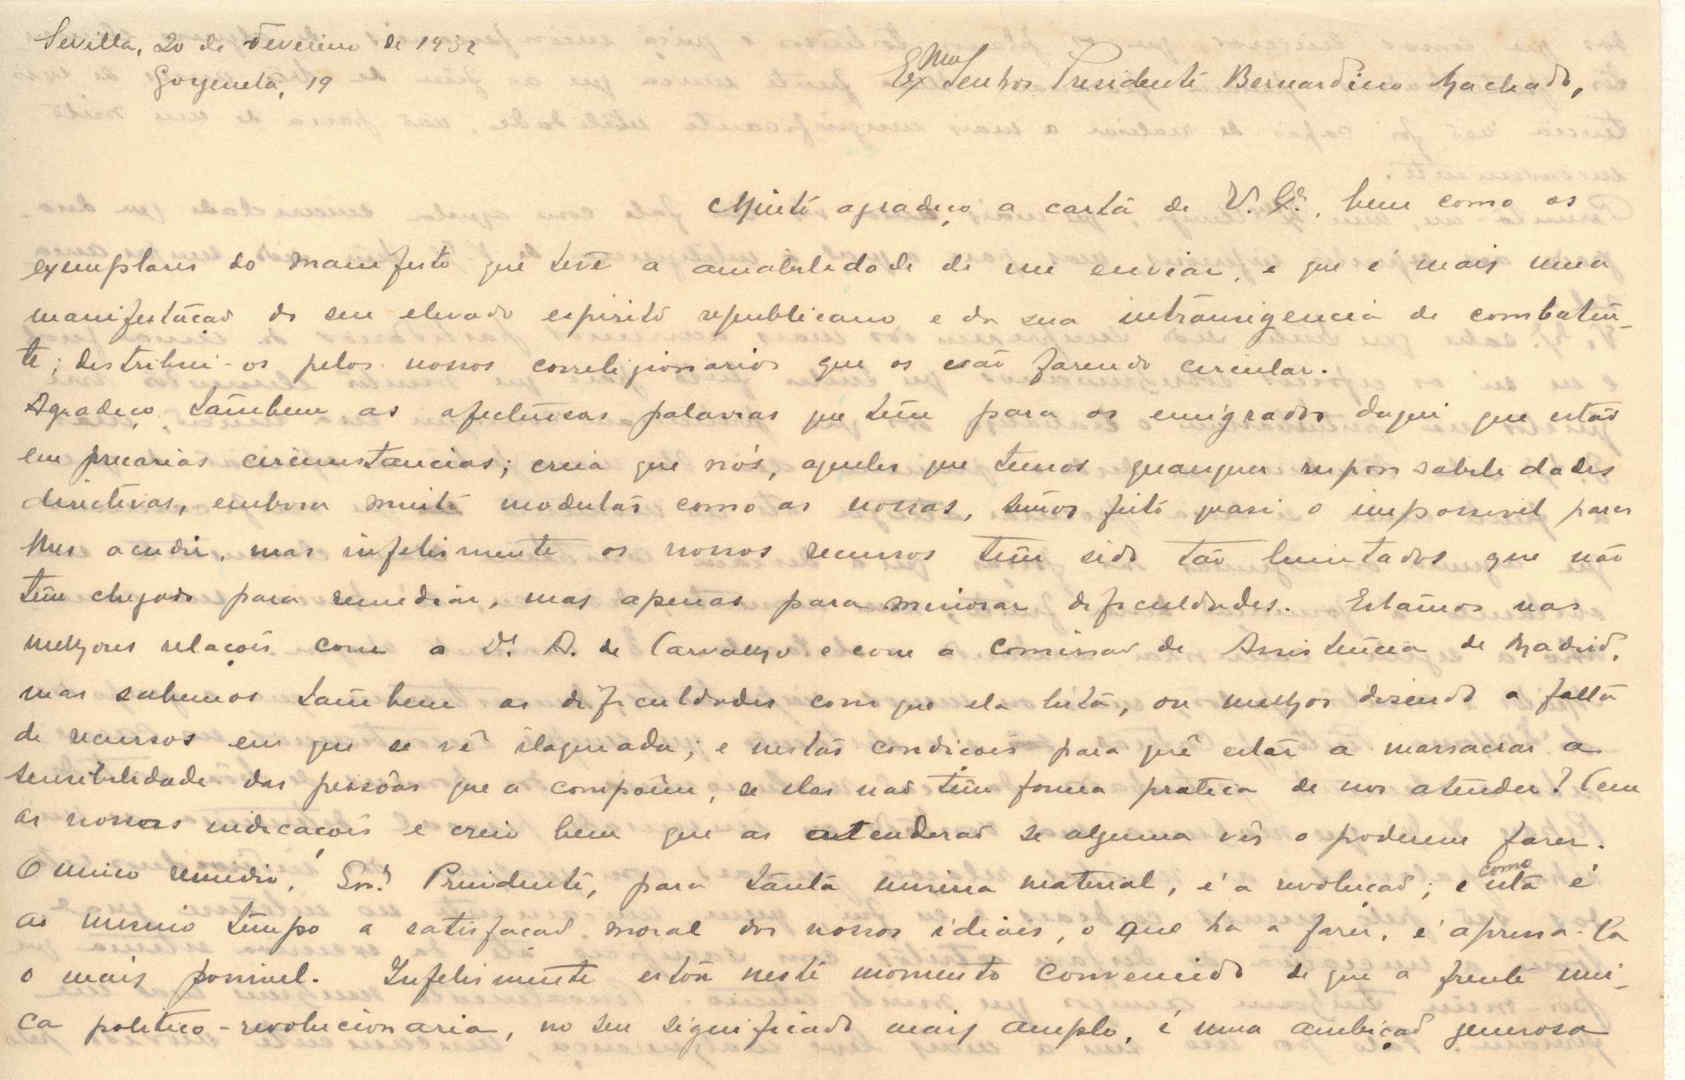 Sevilla, 20 de Fevereiro de 1932
Goyeneta, 19
Exmo Senhor Presidente Bernardino Machado,
Muito agradeço a carta de V. Exª, bem como os
exemplares do manifesto que teve a amabilidade de me enviar, e que é mais uma
manifestação do seu elevado espirito republicano e da sua intransigencia de combaten-
te; distribui-os pelos nossos correligionarios que os estão fazendo circular.
Agradeço tambem as afectuosas palavras que tem para os emigrados daqui que estão
em precarias circunstancias; creia que nós, aqueles que temos quaisquer responsabilidades
directivas, embora muito modestas como as nossas, temos feito quasi o impossivel para
lhes acudir, mas infelismente os nossos recursos têm sido tão limitados que não
têm chegado para remediar, mas apenas para minorar dificuldades. Estamos nas
melhores relações com a Dª A. de Carvalho e com a Comissão de Assistencia de Madrid,
mas sabemos tambem as dificuldades com que ela luta, ou melhor dizendo a falta
de recursos em que se vê; e nestas condições para quê estar a massacrar a
sensibilidade das pessôas que a compõem, se elas não têm forma pratica de nos atender? Tem
as nossas indicações e creio bem que as atenderão se alguma vês o poderem fazer.
O unico remedio, Snr. Presidente, para tanta miseria material, é a revolução; e como esta é
ao mesmo tempo a satisfação moral dos nossos ideiais, o que ha a fazer, é apressa-la
o mais possivel. Infelismente estou neste momento convencido de que a frente uni-
ca politico-revolucionaria, no seu significado mais amplo, é uma ambição generosa